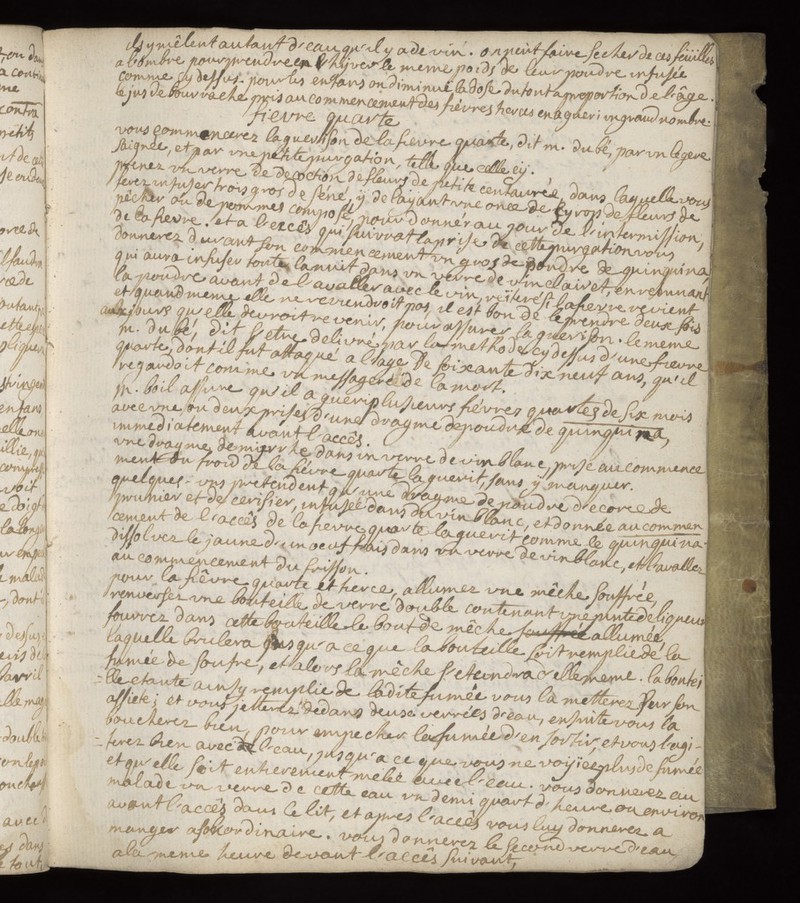 ils y mêlent autant d'eau qu'il y a de vin. on peut faire secher de ces feüilles
a l'ombre pour prendre en l'hyver le meme poids de leur poudre infusée
comme cy dessus. pour les enfans on diminue la dose du tout a proportion de l'âge.
le jus de bourrache pris au commencement des fièvres tierces en a gueri un grand nombre
fievre quarte
vous commencerez la guerison de la fievre quarte, dit m. du bé, par un legere
saignée, et par une petite purgation, telle que celle cy.
prenez un verre de decoction de fleurs de petite centaurée, dans laquelle vous
ferez infuser trois gros de séné, y delayant une once de syrop de fleurs de
pêcher ou de pommes composé, pour donner au jour de l'intermission,
de la fievre. et a l'excés qui suivrat la prise de cette purgation vous
donnerez durant son commencement un gros de poudre de quinquina,
qui aura infuser toute la nuit dans un verre de vin clairet, en remuant
la poudre avant de l'avaller avec le vin, reïterés si la fievre revient
et quand meme elle ne reviendroit pas, il est bon de le prendre deux fois
aux jours qu'elle devroit revenir, pour assurer la guerison. le meme
m. du bé, dit s'etre delivré par la methode cy dessus d'une fievre
quarte, dont il fut attaqué a l'age de soixante dix neuf ans, qu'il
regardoit comme un messagere de la mort.
m. boil assure qu'il a gueri plusieurs fiévres quartes de six mois
avec une ou deux prises d'une dragme de poudre de quinquina,
immediatement avant l'accès.
une dragme de mirrhe dans un verre de vin blanc, prise au commence
ment du froid de la fiévre quarte la guerit sans y manquer.
quelques-uns pretendent qu'une dragme de poudre d'ecorce de
prunier et de cerisier, infusée dans du vin blanc, et donnée au commen
cement de l'accès de la fievre quarte la guerit comme le quinquina.
dissolvez le jaune d'un oeuf frais dans un verre de vin blanc, et l'avallez
au commencement du frisson.
pour la fiévre quarte et tierce, allumez une mêche souffrée,
renversez une bouteille de verre double contenant une pinte de liqueur
fourrez dans cette bouteille le bout de mêche allumée
laquelle brulera jusqu'a ce que la bouteille soit remplie de la
fumée de soufre, et alors la mêche s'eteindra d'elle meme. la boutei
lle etante ainsy remplie de ladite fumée vous la metterez sur son
assiete; et vous jetterez dedans deux verrées d'eau, ensuite vous la
boucherez bien, pour empecher la fumée d'en sortir, et vous l'agi-
terez bien avec l'eau, jusqu'a ce que vous ne voyiez plus de fumée
et qu'elle soit entierement melée avec l'eau. vous donnerez au
malade un verre de cette eau un demi quart d'heure ou environ
avant l'accès dans le lit, et apres l'accès vous luy donnerez a
manger a son ordinaire. vous donnerez le second verre d'eau
a la meme heure devant l'accès suivant,